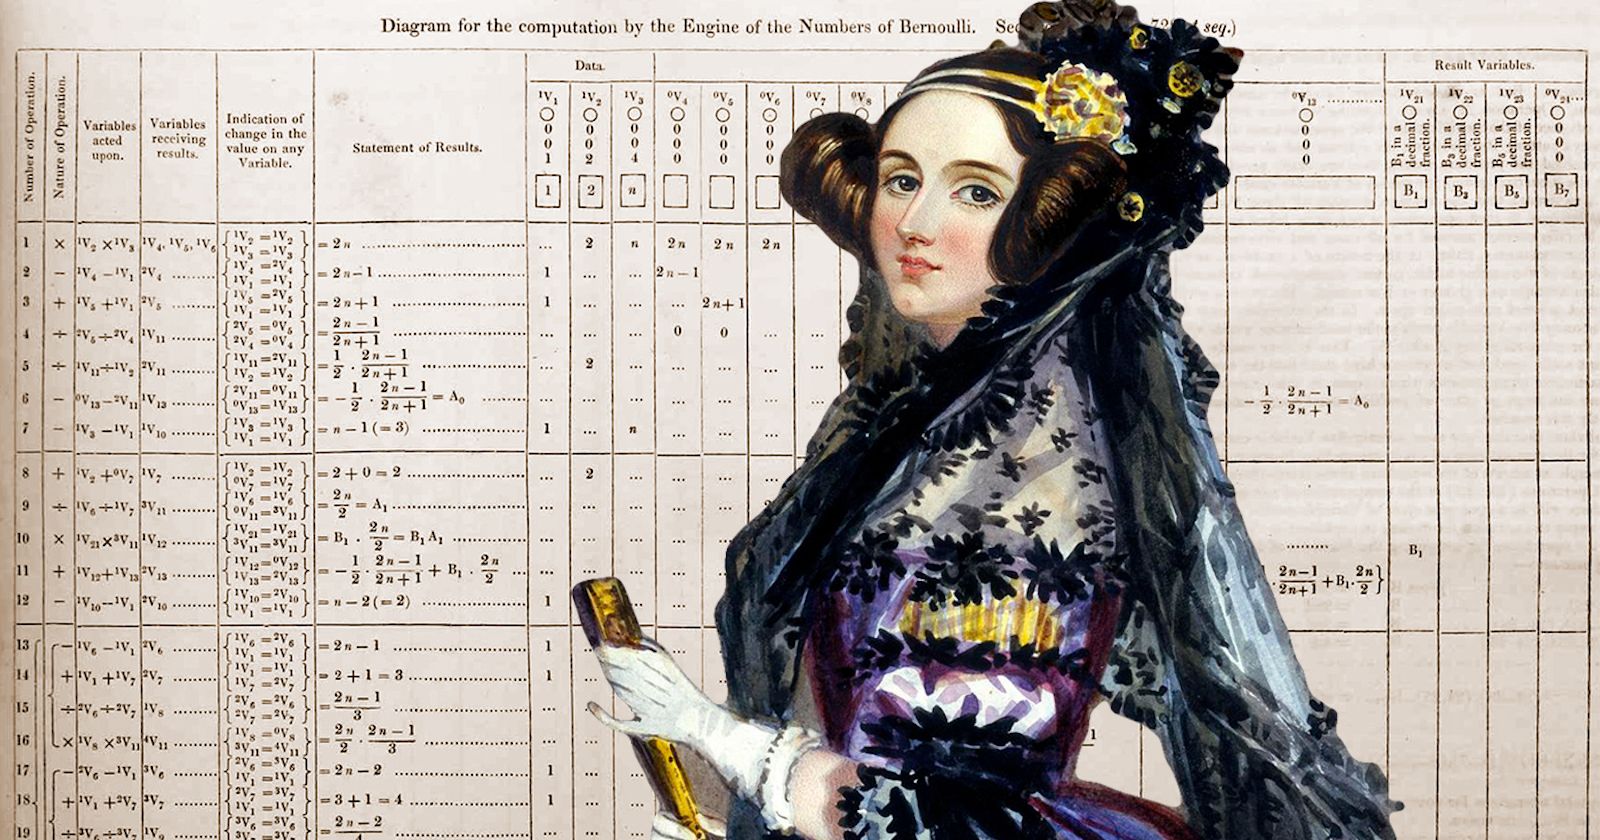 Diagram for the computation by the Engine of the Numbers of Bernoulli.
seq.)
Data.
Result Variables.
Number of Operation.
Nature of Operation.
Variables acted upon.
Variables receiving results.
Indication of change in the value on any Variable.
Statement of Results.
¹V₁ ¹V₂ ¹V₃ ⁰V₄ ⁰V₅ ⁰V₆ ⁰V₇ ⁰V₈ ⁰V₁₃ ............ ¹V₂₁ ¹V₂₂ ¹V₂₃ ⁰V₂₄...
○ ○ ○ ○ ○ ○ ○ ○ ○ ○ ○
0 0 0 0 0 0 0
0 0 0 0 0 0 0
1 2 4 0 0 0 0
B₁ in a decimal fraction.
B₃ in a decimal fraction.
B₅ in a decimal fraction.
1 2 n B₁ B₃ B₅ B₇
1 × ¹V₂ × ¹V₃ ¹V₄, ¹V₅, ¹V₆ {¹V₂ = ¹V₂ ¹V₃ = ¹V₃} = 2n ... 2 n 2n 2n 2n
2 − ¹V₄ − ¹V₁ ²V₄ {¹V₄ = ²V₄ ¹V₁ = ¹V₁} = 2n − 1 1 ... ... 2n − 1
3 + ¹V₅ + ¹V₁ ²V₅ {¹V₅ = ²V₅ ¹V₁ = ¹V₁} = 2n + 1 1 ... ... ... 2n + 1
4 ÷ ²V₅ ÷ ²V₄ ¹V₁₁ {²V₅ = ⁰V₅ ²V₄ = ⁰V₄} = (2n − 1)/(2n + 1) ... ... ... 0 0 ... ...
5 ÷ ¹V₁₁ ÷ ¹V₂ ²V₁₁ {¹V₁₁ = ²V₁₁ ¹V₂ = ¹V₂} = 1/2 · (2n − 1)/(2n + 1) ... 2 ... ... ... ... ...
6 − ⁰V₁₃ − ²V₁₁ ¹V₁₃ {²V₁₁ = ⁰V₁₁ ⁰V₁₃ = ¹V₁₃} = − 1/2 · (2n − 1)/(2n + 1) = A₀ ... ... ... ... ... ... − 1/2 · (2n − 1)/(2n + 1) = A₀
7 − ¹V₃ − ¹V₁ ¹V₁₀ {¹V₃ = ¹V₃ ¹V₁ = ¹V₁} = n − 1 (= 3) 1 ... n ... ... ...
8 + ¹V₂ + ⁰V₇ ¹V₇ {¹V₂ = ¹V₂ ⁰V₇ = ¹V₇} = 2 + 0 = 2 ... 2 ... ... ... ...
9 ÷ ¹V₆ ÷ ¹V₇ ³V₁₁ {¹V₆ = ¹V₆ ⁰V₁₁ = ³V₁₁} = 2n/2 = A₁ ... ... ... ... ...
10 × ¹V₂₁ × ³V₁₁ ¹V₁₂ {¹V₂₁ = ¹V₂₁ ³V₁₁ = ³V₁₁} = B₁ · 2n/2 = B₁A₁ ... ... ... ... ... ......... B₁
11 + ¹V₁₂ + ¹V₁₃ ²V₁₃ {¹V₁₂ = ⁰V₁₂ ¹V₁₃ = ²V₁₃} = − 1/2 · (2n − 1)/(2n + 1) + B₁ · 2n/2 ... ... ... ... ... (2n − 1)/(2n + 1) + B₁ · 2n/2}
12 − ¹V₁₀ − ¹V₁ ²V₁₀ {¹V₁₀ = ²V₁₀ ¹V₁ = ¹V₁} = n − 2 (= 2) 1 ... ... ...
13 − ¹V₆ − ¹V₁ ²V₆ {¹V₆ = ²V₆ ¹V₁ = ¹V₁} = 2n − 1 1
14 + ¹V₁ + ¹V₇ ²V₇ {¹V₁ = ¹V₁ ¹V₇ = ²V₇} = 2 + 1 = 3 1
15 ÷ ²V₆ ÷ ²V₇ ¹V₈ {²V₆ = ²V₆ ²V₇ = ²V₇} = (2n − 1)/3 ...
16 × ¹V₈ × ³V₁₁ ⁴V₁₁ {¹V₈ = ⁰V₈ ³V₁₁ = ⁴V₁₁} = 2n/2 · (2n − 1)/3 ... ...
17 − ²V₆ − ¹V₁ ³V₆ {²V₆ = ³V₆ ¹V₁ = ¹V₁} = 2n − 2 1 ... ...
18 + ¹V₁ + ²V₇ ³V₇ {²V₇ = ³V₇ ¹V₁ = ¹V₁} = 3 + 1 = 4 1 ... ...
19 ÷ ³V₆ ÷ ³V₇ ¹V₉ {³V₆ = ³V₆ ³V₇ = ³V₇} = (2n − 2)/4 ... ...